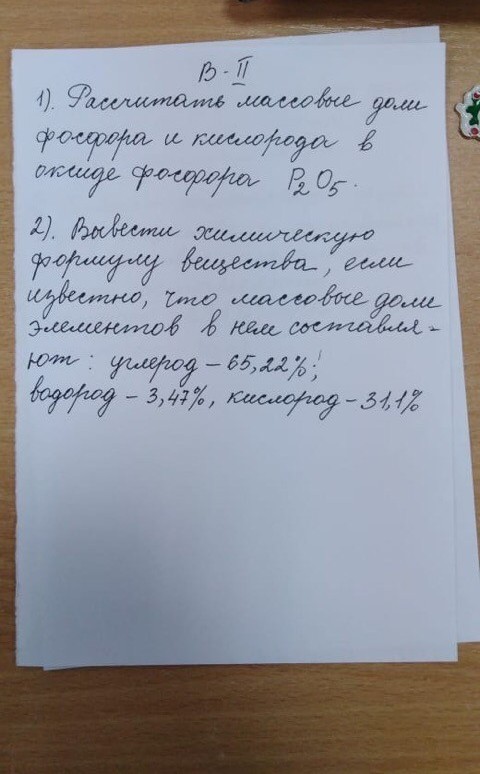 В-II
1). Рассчитать массовые доли
фосфора и кислорода в
оксиде фосфора P₂O₅.
2). Вывести химическую
формулу вещества, если
известно, что массовые доли
элементов в нем составля=
ют: углерод – 65,22%;
водород – 3,47%, кислород – 31,1%